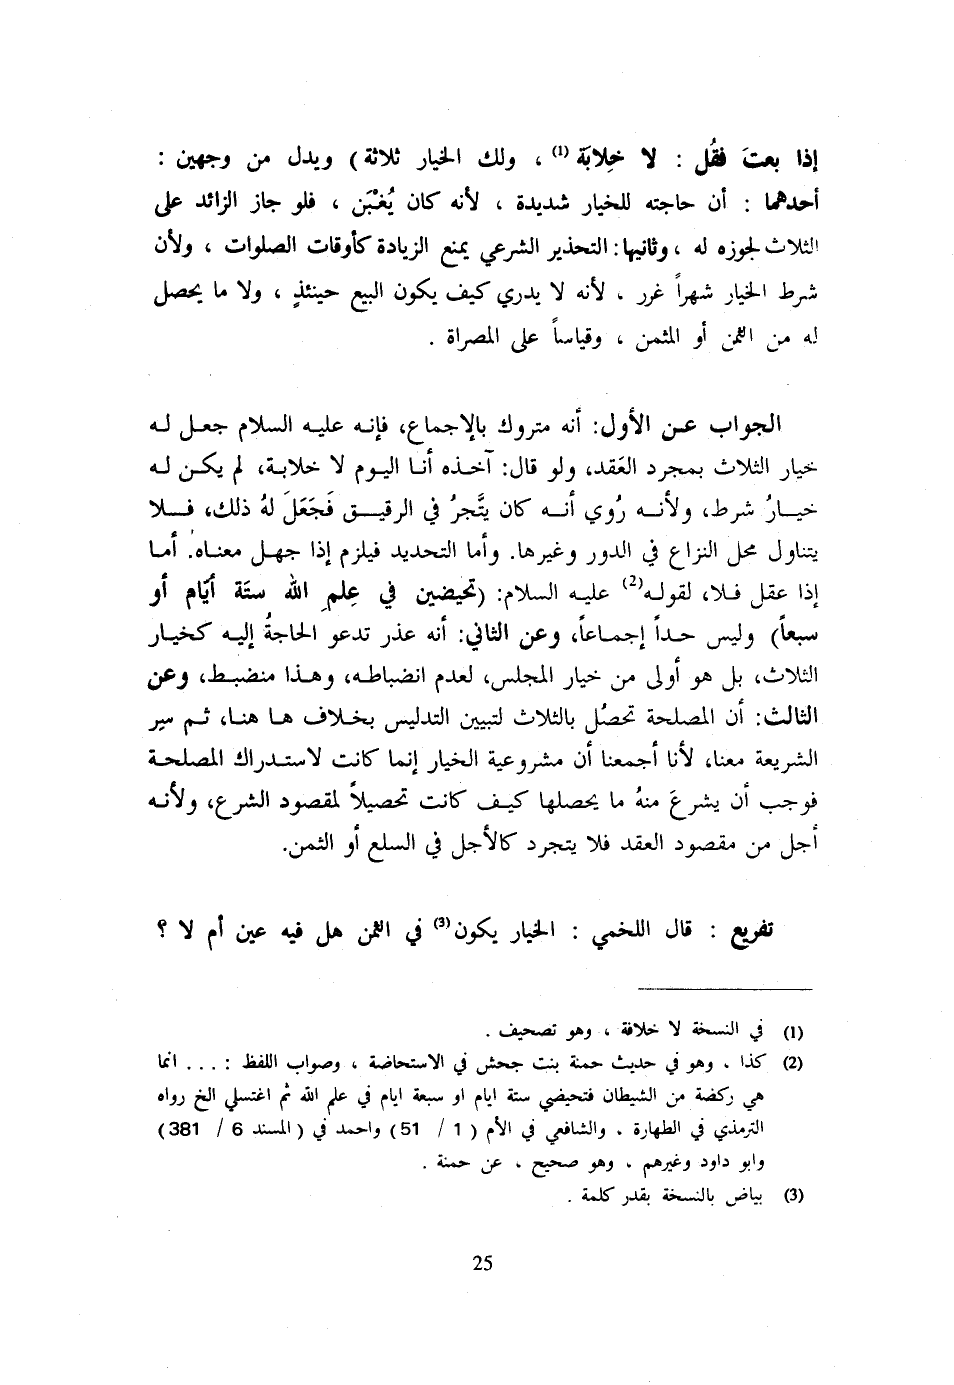 إذا بعتَ فقُل : لا خِلابَة (1) ، ولك الخيار ثلاثة ) ويدل من وجهين :
أحدهما : أن حاجته للخيار شديدة ، لأنه كان يُغْبَن ، فلو جاز الزائد على
الثلاث لجوزه له ، وثانيها : التحذير الشرعي يمنع الزيادة كأوقات الصلوات ، ولأن
شرط الخيار شهراً غرر ، لأنه لا يدري كيف يكون البيع حينئذٍ ، ولا ما يحصل
له من الثمن أو المثمن ، وقياساً على المصراة .
الجواب عن الأول: أنه متروك بالإجماع، فإنه عليه السلام جعل له
خيار الثلاث بمجرد العَقد، ولو قال: آخذه أنا اليوم لا خلابة، لم يكن له
خيارُ شرط، ولأنه رُوي أنه كان يتَّجرُ في الرقيق فَجَعَلَ لهُ ذلك، فلا
يتناول محل النزاع في الدور وغيرها. وأما التحديد فيلزم إذا جهل معناه. أما
إذا عقل فلا، لقوله(2) عليه السلام: (تحيضين في عِلم الله ستَة أيّام أو
سبعاً) وليس حداً إجماعاً، وعن الثاني: أنه عذر تدعو الحاجةُ إليه كخيار
الثلاث، بل هو أولى من خيار المجلس، لعدم انضباطه، وهذا منضبط، وعن
الثالث: أن المصلحة تحصُل بالثلاث لتبيين التدليس بخلاف ها هنا، ثم سير
الشريعة معنا، لأنا أجمعنا أن مشروعية الخيار إنما كانت لاستدراك المصلحة
فوجب أن يشرعَ منهُ ما يحصلها كيف كانت تحصيلاً لمقصود الشرع، ولأنه
أجل من مقصود العقد فلا يتجرد كالأجل في السلع أو الثمن.
تفريع : قال اللخمي : الخيار يكون(3) في الثمن هل فيه عين أم لا ؟
(1) في النسخة لا خلافة ، وهو تصحيف .
(2) كذا . وهو في حديث حمنة بنت جحش في الاستحاضة ، وصواب اللفظ : . . . انما
هي ركضة من الشيطان فتحيضي ستة ايام او سبعة ايام في علم الله ثم اغتسلي الخ رواه
الترمذي في الطهارة . والشافعي في الأم ( 1 / 51 ) واحمد في ( المسند 6 / 381 )
وابو داود وغيرهم . وهو صحيح ، عن حمنة .
(3) بياض بالنسخة بقدر كلمة .
25